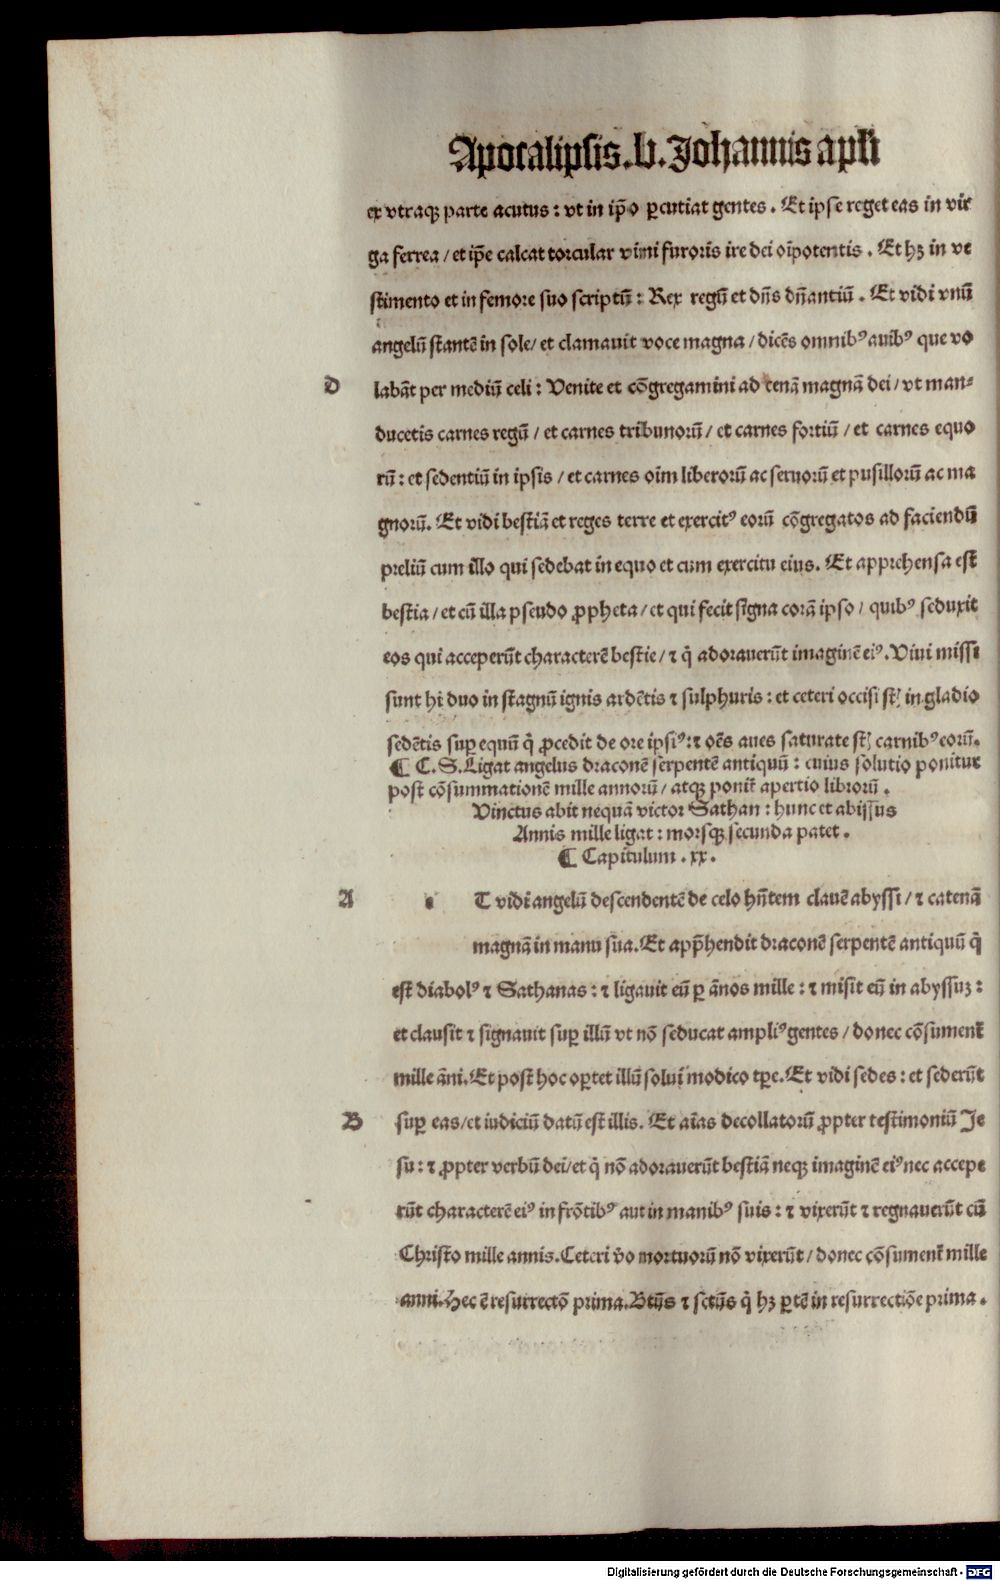 Apocalipsis .b. Johannis apl̄i
ex vtraqꝫ parte acutus : vt in ip̄o ꝑcutiat gentes . Et ipse reget eas in vir
ga ferrea / et ip̄e calcat torcular vini furoris ire dei oīpotentis . Et hꝫ in ve
stimento et in femore suo scriptū : Rex regū et dn̄s dn̄antiū . Et vidi vnū
angelū stantē in sole / et clamauit voce magna / dicēs omnibꝰ auibꝰ que vo
D
labāt per mediū celi : Venite et cōgregamini ad cenā magnā dei / vt man⸗
ducetis carnes regū / et carnes tribunorū / et carnes fortiū / et carnes equo
rū : et sedentiū in ipsis / et carnes oīm liberorū ac seruorū et pusillorū ac ma
gnorū . Et vidi bestiā et reges terre et exercitꝰ eorū cōgregatos ad faciendū
preliū cum illo qui sedebat in equo et cum exercitu eius . Et apprehensa est
bestia / et cū illa pseudo ꝓpheta / et qui fecit signa corā ipso / quibꝰ seduxit
eos qui acceperūt characterē bestie / ⁊ q̄ adorauerūt imaginē eiꝰ . Viui missi
sunt hi duo in stagnū ignis ardētis ⁊ sulphuris : et ceteri occisi st̄ in gladio
sedētis suꝑ equū q̄ ꝓcedit de ore ipsiꝰ : ⁊ oēs aues saturate st̄ carnibꝰ eorū .
¶ C . S . Ligat angelus draconē serpentē antiquū : cuius solutio ponitur
post cōsummationē mille annorū / atqꝫ ponit᷑ apertio librorū .
Vinctus abit nequā victor Sathan : hunc et abissus
Annis mille ligat : morsqꝫ secunda patet .
¶ Capitulum . xx .
A
e T vidi angelū descendentē de celo hn̄tem clauē abyssi / ⁊ catenā
magnā in manu sua . Et app̄hendit draconē serpentē antiquū q̄
est diabolꝰ ⁊ Sathanas : ⁊ ligauit eū ꝑ ānos mille : ⁊ misit eū in abyssuꝫ :
et clausit ⁊ signauit suꝑ illū vt nō seducat ampliꝰ gentes / donec cōsument᷑
mille āni . Et post hoc oꝑtet illū solui modico tꝑe . Et vidi sedes : et sederūt
B
suꝑ eas / et iudiciū datū est illis . Et aīas decollatorū ꝓpter testimoniū Je
su : ⁊ ꝓpter verbū dei / et q̄ nō adorauerūt bestiā neqꝫ imaginē eiꝰ nec accepe
rūt characterē eiꝰ in frōtibꝰ aut in manibꝰ suis : ⁊ vixerūt ⁊ regnauerūt cū
Christo mille annis . Ceteri v̄o mortuorū nō vixerūt / donec cōsument᷑ mille
anni . Hec ē resurrectō prima . Bt̄us ⁊ sct̄us q̄ hꝫ ꝑtē in resurrectiōe prima .
Digitalisierung gefördert durch die Deutsche Forschungsgemeinschaft - DFG